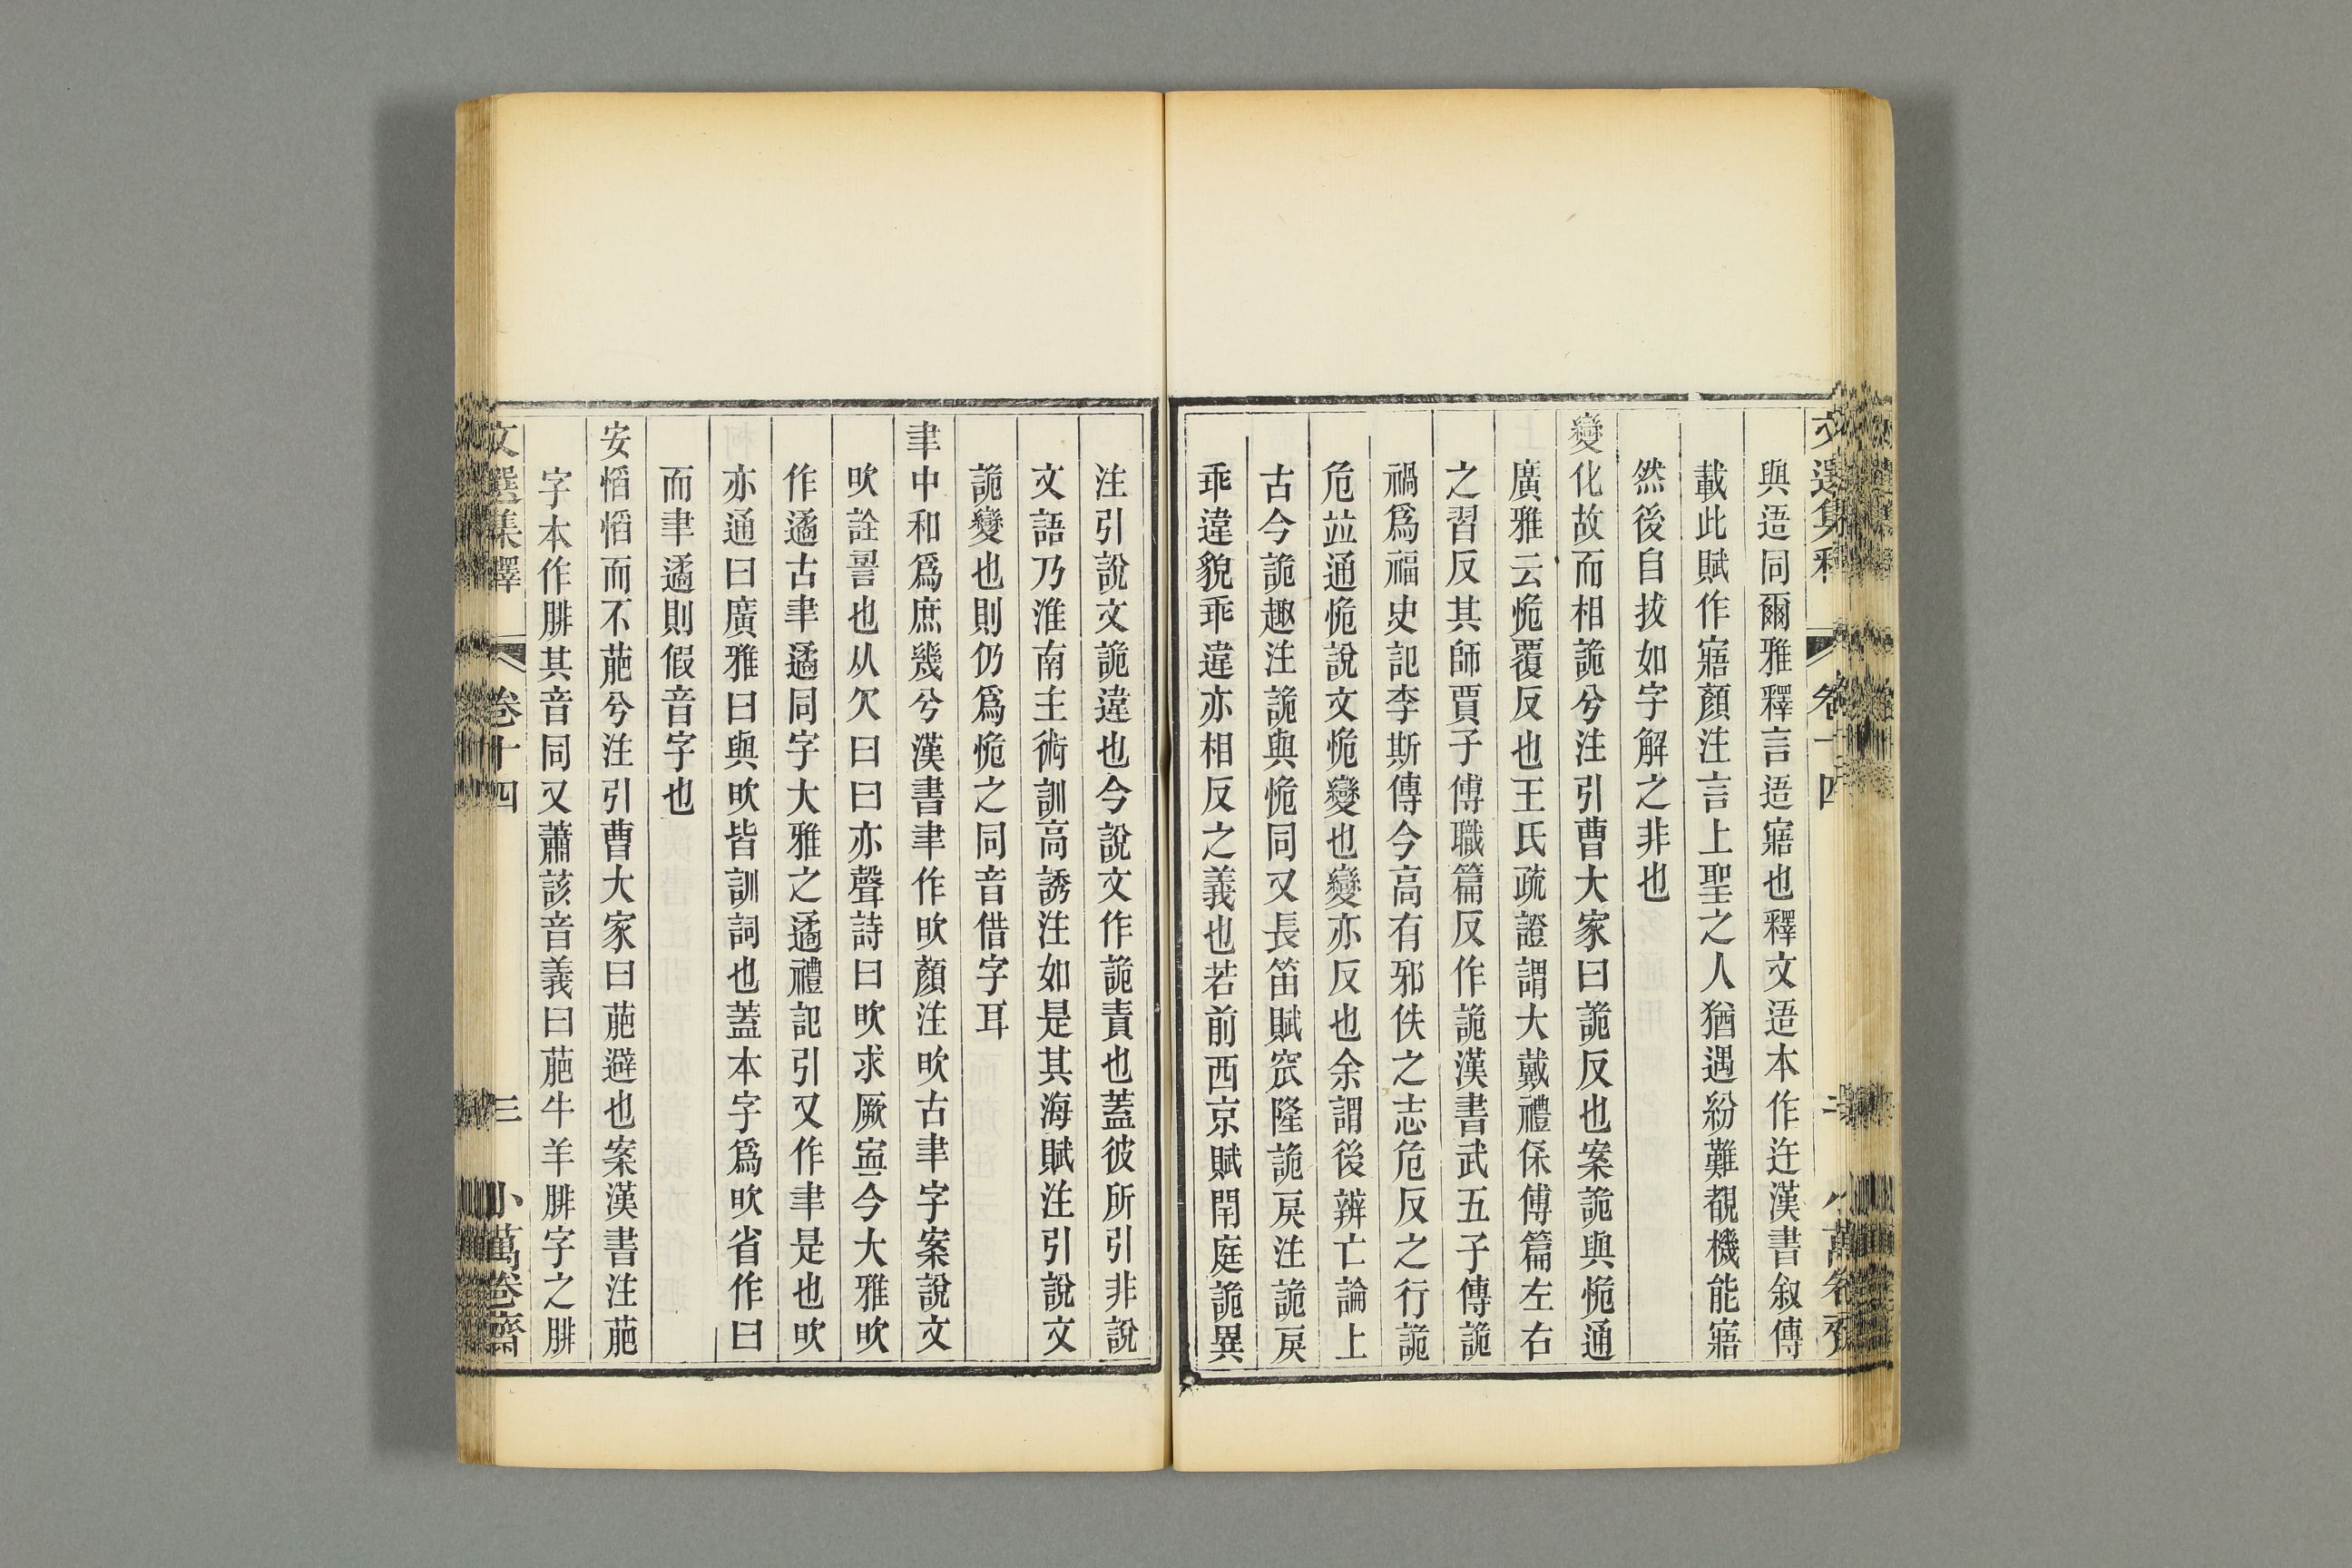 與逜同爾雅釋言逜寤也釋文逜本作迕漢書叙傳
載此賦作寤顏注言上聖之人猶遇紛難覩機能寤
然後自拔如字解之非也
變化故而相詭兮注引曹大家曰詭反也案詭與恑通
廣雅云恑覆反也王氏疏證謂大戴禮保傅篇左右
之習反其師賈子傅職篇反作詭漢書武五子傳詭
禍爲福史記李斯傳今高有邪佚之志危反之行詭
危竝通恑說文恑變也變亦反也余謂後辨亡論上
古今詭趣注詭與恑同又長笛賦窊隆詭戾注詭戾
乖違貌乖違亦相反之義也若前西京賦閈庭詭異
注引說文詭違也今說文作詭責也蓋彼所引非說
文語乃淮南主術訓高誘注如是其海賦注引說文
詭變也則仍爲恑之同音借字耳
聿中和爲庶幾兮漢書聿作欥顏注欥古聿字案說文
欥詮䛐也从欠曰曰亦聲詩曰欥求厥寍今大雅欥
作遹古聿遹同字大雅之遹禮記引又作聿是也欥
亦通曰廣雅曰與欥皆訓詞也蓋本字爲欥省作曰
而聿遹則假音字也
安慆慆而不萉兮注引曹大家曰萉避也案漢書注萉
字本作腓其音同又蕭該音義曰萉牛羊腓字之腓
文選集釋 卷十四 三 小萬卷齋